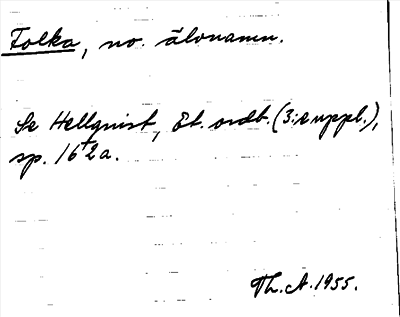 Folka, no. älvnamn.
Se Hellquist, Et. ordb. (3:e uppl.),
sp. 1612a.
Th. A. 1955.